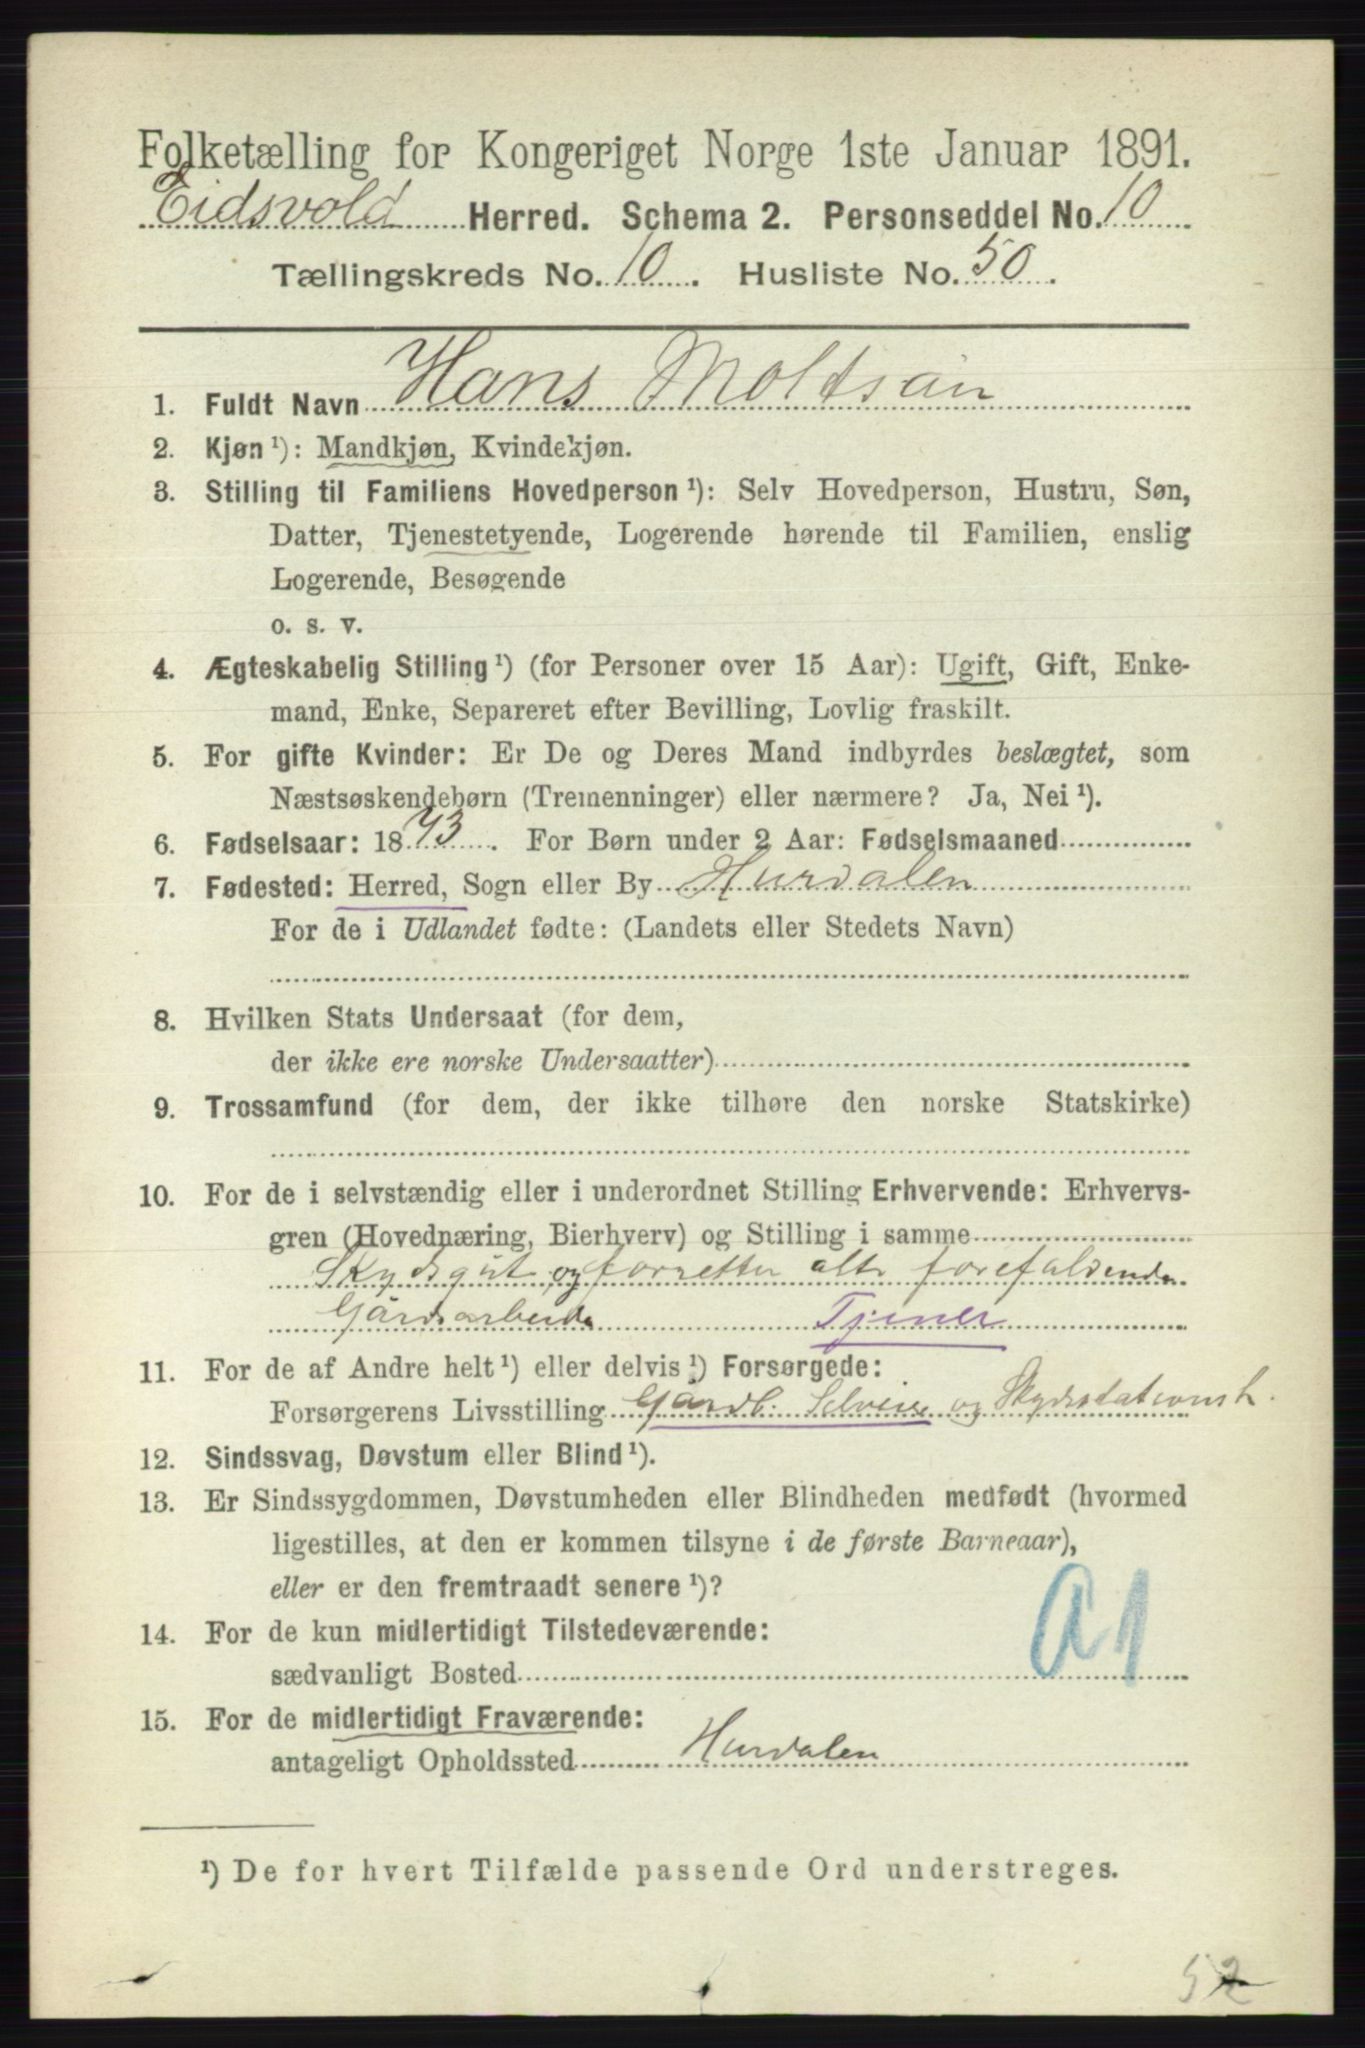 Folketælling for Kongeriget Norge 1ste Januar 1891.
Eidsvold Herred. Schema 2. Personseddel No. 10
Tællingskreds No. 10. Husliste No. 50.
1. Fuldt Navn Hans Moltsan
2. Kjøn ¹): Mandkjøn, Kvindekjøn.
3. Stilling til Familiens Hovedperson ¹): Selv Hovedperson, Hustru, Søn,
Datter, Tjenestetyende, Logerende hørende til Familien, enslig
Logerende, Besøgende
o. s. v.
4. Ægteskabelig Stilling ¹) (for Personer over 15 Aar): Ugift, Gift, Enke-
mand, Enke, Separeret efter Bevilling, Lovlig fraskilt.
5. For gifte Kvinder: Er De og Deres Mand indbyrdes beslægtet, som
Næstsøskendebørn (Tremenninger) eller nærmere? Ja, Nei ¹).
6. Fødselsaar: 1873. For Børn under 2 Aar: Fødselsmaaned
7. Fødested: Herred, Sogn eller By Hurdalen
For de i Udlandet fødte: (Landets eller Stedets Navn)
8. Hvilken Stats Undersaat (for dem,
der ikke ere norske Undersaatter)
9. Trossamfund (for dem, der ikke tilhøre den norske Statskirke)
10. For de i selvstændig eller i underordnet Stilling Erhvervende: Erhvervs-
gren (Hovednæring, Bierhverv) og Stilling i samme
Skydsgut og forretter alt forefaldende
Gårdsarbeide Tjener
11. For de af Andre helt ¹) eller delvis ¹) Forsørgede:
Forsørgerens Livsstilling Gårdb. Selveier og Skydsstationsh.
12. Sindssvag, Døvstum eller Blind ¹).
13. Er Sindssygdommen, Døvstumheden eller Blindheden medfødt (hvormed
ligestilles, at den er kommen tilsyne i de første Barneaar),
eller er den fremtraadt senere ¹)?
14. For de kun midlertidigt Tilstedeværende:
sædvanligt Bosted
A1
15. For de midlertidigt Fraværende:
antageligt Opholdssted Hurdalen
¹) De for hvert Tilfælde passende Ord understreges.
52